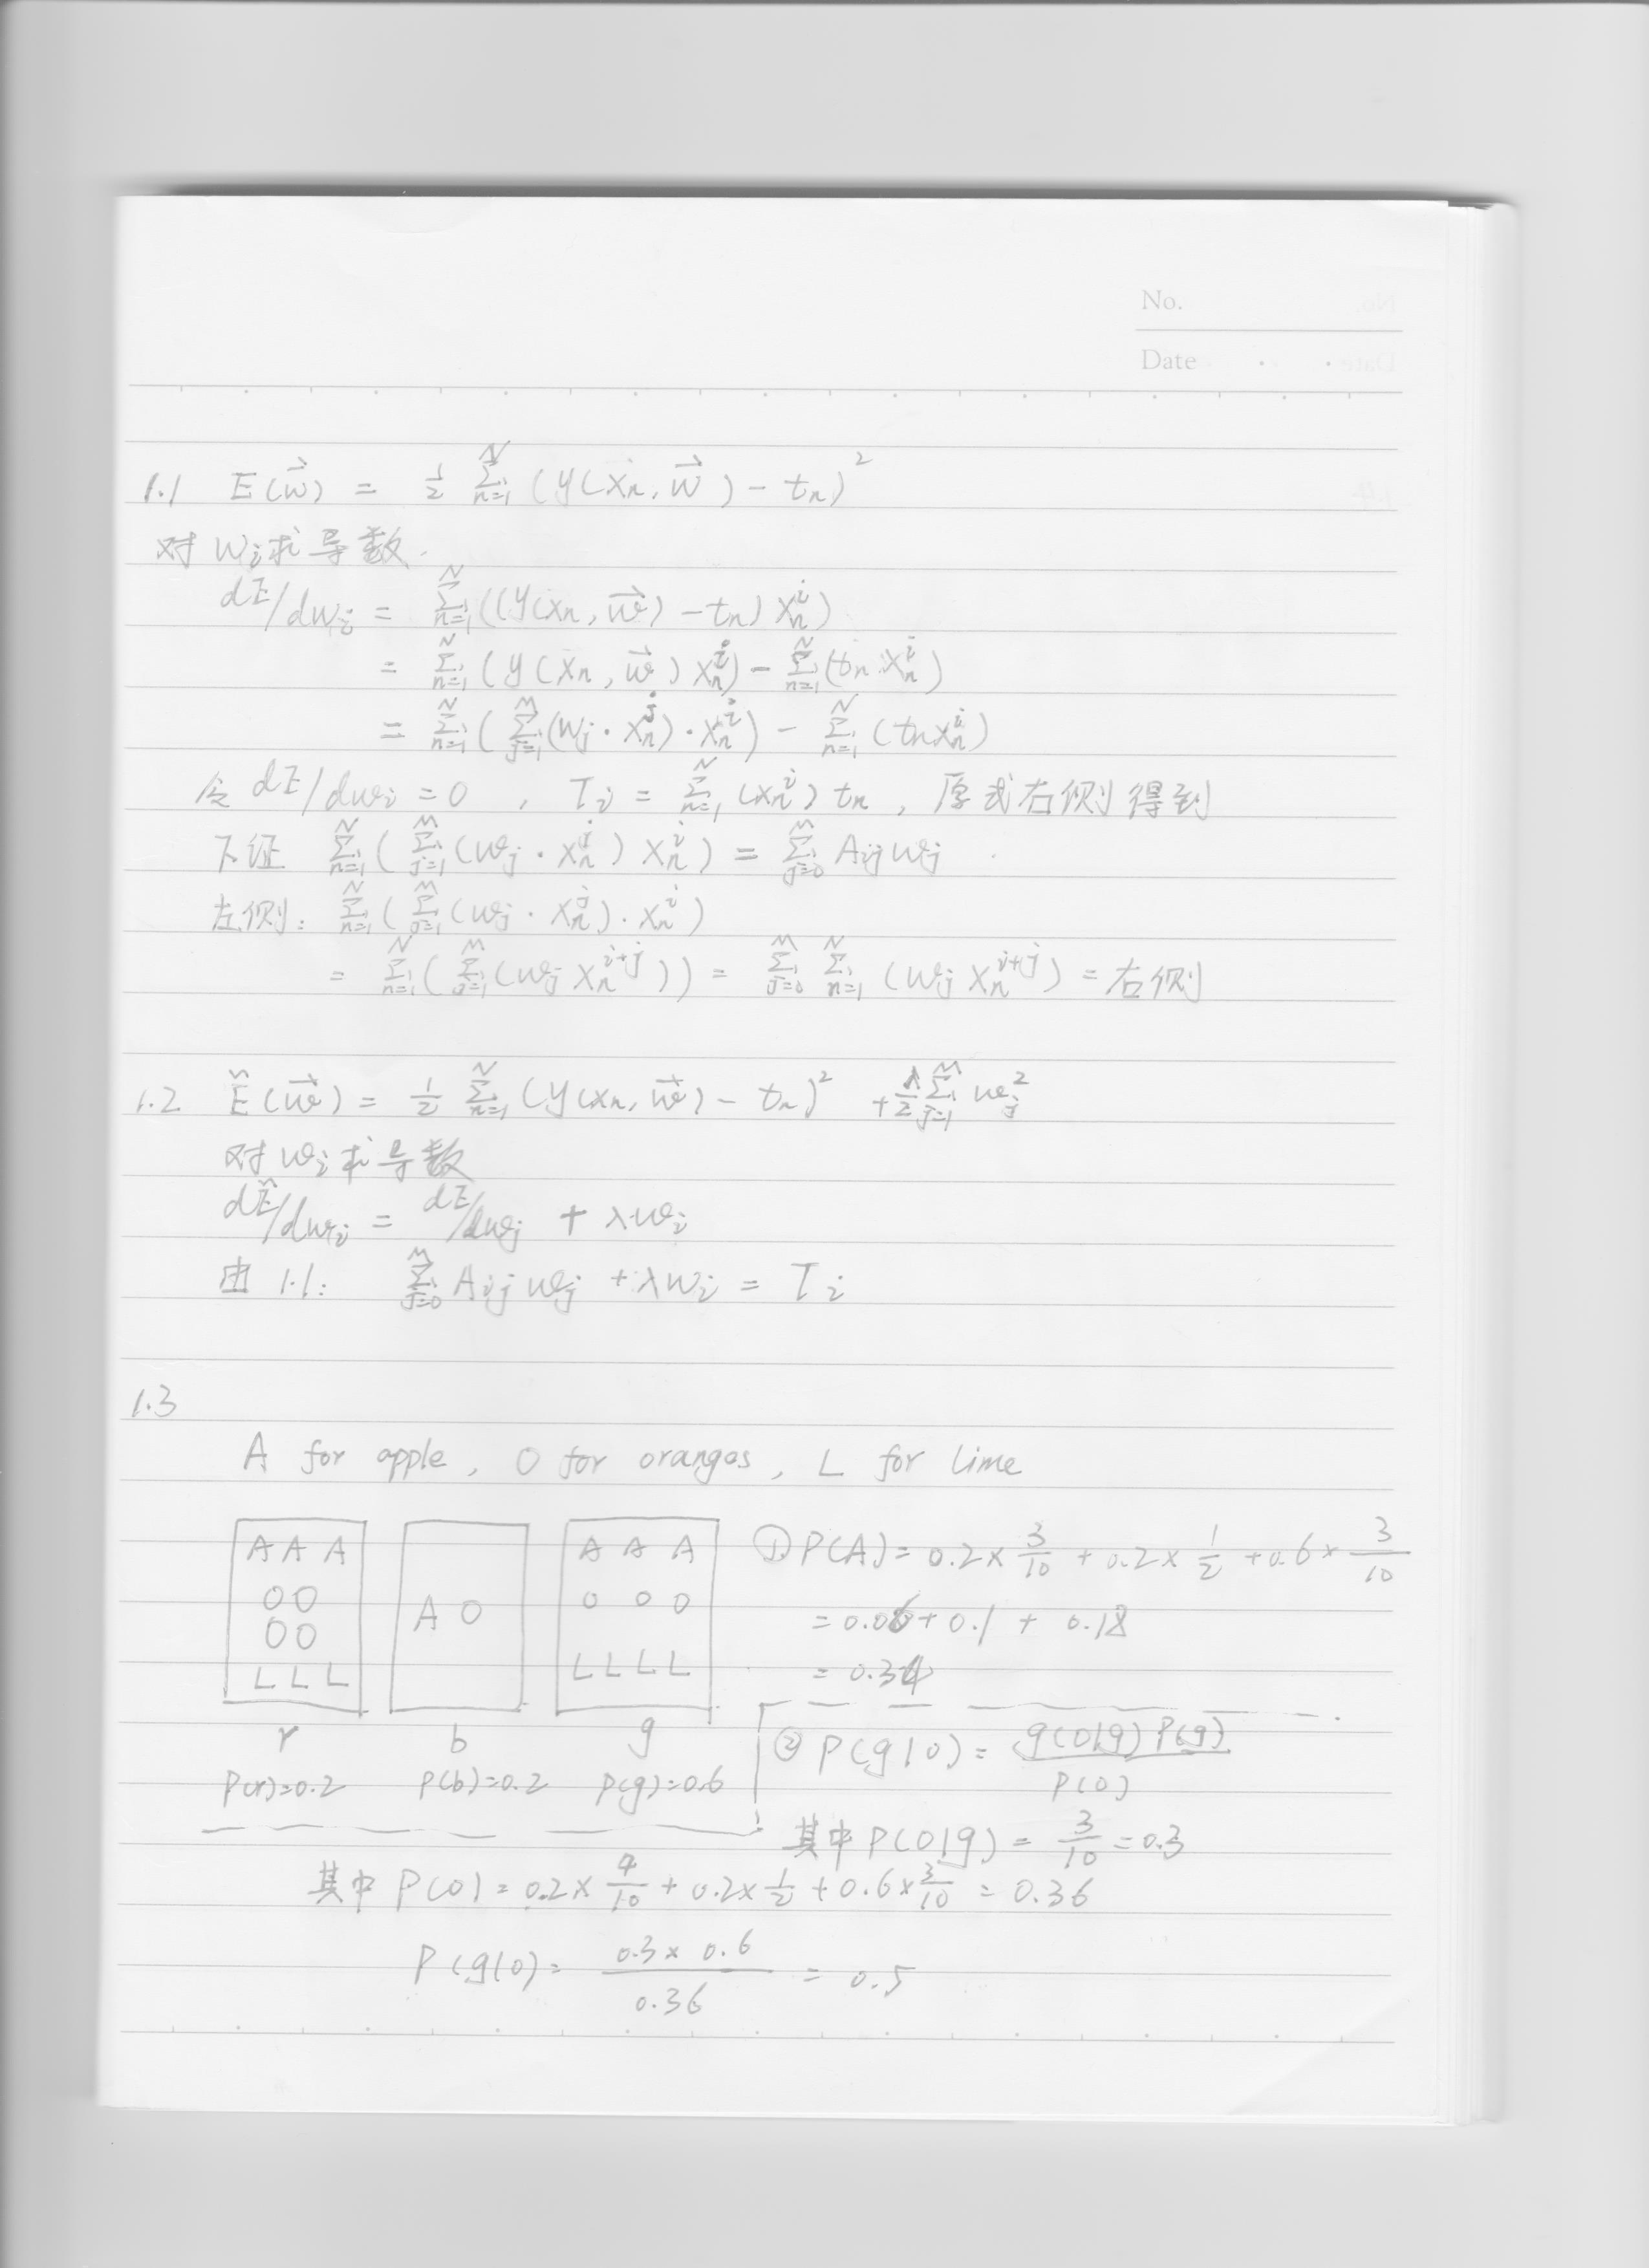 No.
Date
1.1 E(w⃗) = 1/2 Σ_{n=1}^{N} (y(x_n, w⃗) - t_n)^2
对 w_i 求导数.
dE/dw_i = Σ_{n=1}^{N} ((y(x_n, w⃗) - t_n) x_n^i)
= Σ_{n=1}^{N} (y(x_n, w⃗) x_n^i) - Σ_{n=1}^{N} (t_n x_n^i)
= Σ_{n=1}^{N} (Σ_{j=1}^{M} (w_j · x_n^j) · x_n^i) - Σ_{n=1}^{N} (t_n x_n^i)
令 dE/dw_i = 0 , T_i = Σ_{n=1}^{N} (x_n^i) t_n , 原式右侧得到
下证 Σ_{n=1}^{N} (Σ_{j=1}^{M} (w_j · x_n^j) x_n^i) = Σ_{j=0}^{M} A_ij w_j .
左侧: Σ_{n=1}^{N} (Σ_{j=1}^{M} (w_j · x_n^j) · x_n^i)
= Σ_{n=1}^{N} (Σ_{j=1}^{M} (w_j x_n^{i+j})) = Σ_{j=0}^{M} Σ_{n=1}^{N} (w_j x_n^{i+j}) = 右侧
1.2 Ẽ(w⃗) = 1/2 Σ_{n=1}^{N} (y(x_n, w⃗) - t_n)^2 + λ/2 Σ_{j=1}^{M} w_j^2
对 w_i 求导数
dẼ/dw_i = dE/dw_j + λw_i
由 1.1: Σ_{j=0}^{M} A_ij w_j + λw_i = T_i
1.3
A for apple, O for oranges, L for lime
A A A
O O
O O
L L L
r
P(r)=0.2
A O
b
P(b)=0.2
A A A
O O O
L L L L
g
P(g)=0.6
① P(A) = 0.2 × 3/10 + 0.2 × 1/2 + 0.6 × 3/10
= 0.06 + 0.1 + 0.18
= 0.34
② P(g|O) = g(O|g) P(g) / P(O)
其中 P(O|g) = 3/10 = 0.3
其中 P(O) = 0.2 × 4/10 + 0.2 × 1/2 + 0.6 × 3/10 = 0.36
P(g|O) = 0.3 × 0.6 / 0.36 = 0.5